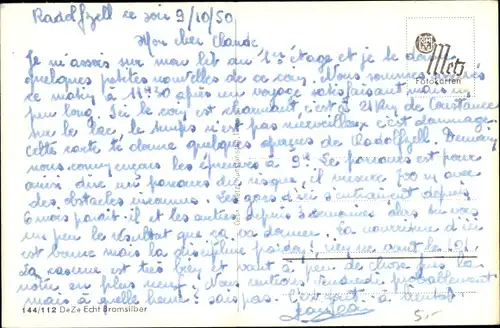 Radolfzell ce soir 9/10/50
Mon cher Claude,
Je m'assois sur mon lit au 1er étage et je te donne
quelques petites nouvelles de ce coin. Nous sommes arrivés
ce matin à 11h30 après un voyage satisfaisant mais un
peu long. Ici le coin est charmant c'est à 21km de Constance
sur le lac, le temps n'est pas merveilleux c'est dommage.
Cette carte te donne quelques aperçus de Radolfzell. Demain
nous commençons les épreuves à 9h. Le parcours est pour
ainsi dire un parcours du risque, il mesure 700 m avec
des obstacles inconnus. Les gars d'ici s'entrainent depuis
6 mois parait-il et les autres depuis 3 semaines alors tu vois
un peu le résultat que ça va donner. La nourriture d'ici
est bonne mais la discipline
La caserne est très bien et vaut à peu de chose près la
nôtre en plus neuf. Nous rentrons vendredi probablement
mais à quelle heure ? sais pas. C'est tout à bientôt
Metz
Fotokarten
144/112 DeZe Echt Bromsilber
5,-